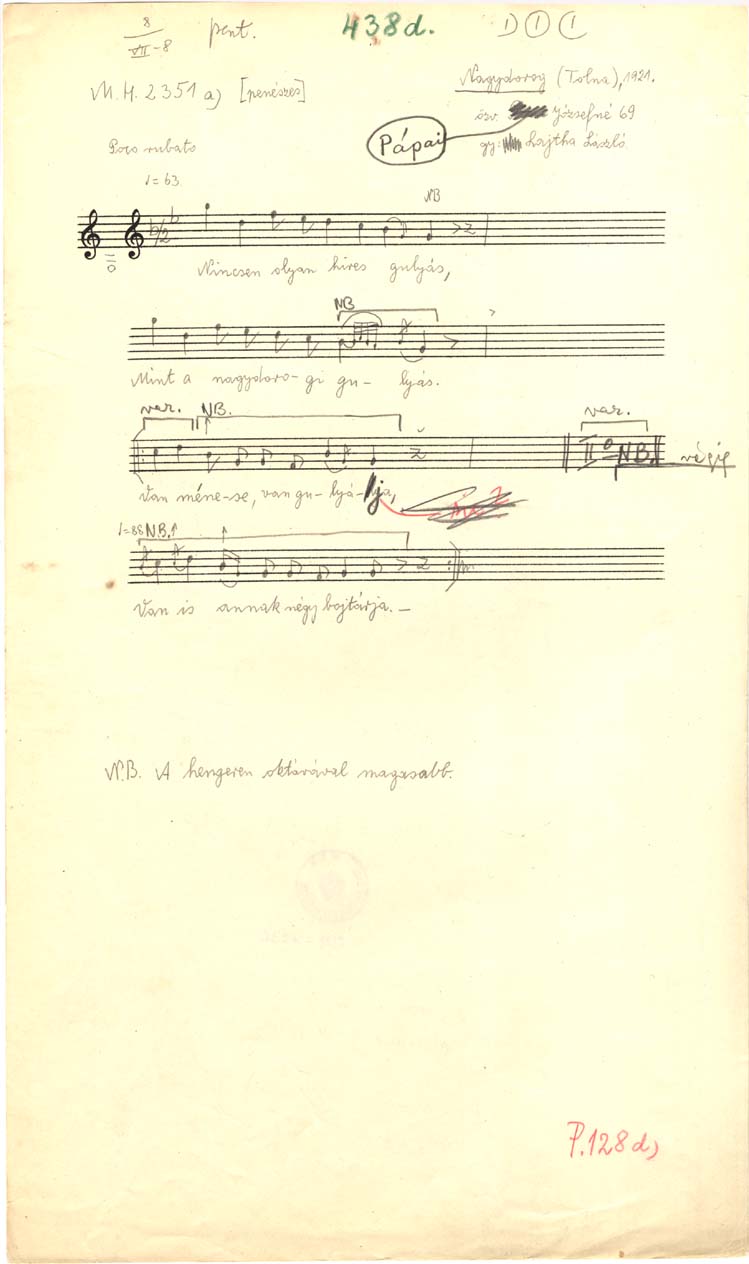 8 pent. 438d. I I I
VII-8
M.H. 2351 a) [penészes] Nagydorog (Tolna), 1921.
özv. Józsefné 69
Pápai
gy: Lajtha László
Poco rubato
♩= 63
NB
Nincsen olyan híres gulyás,
NB
Mint a nagydoro- gi gu- lyás.
var. NB. var.
II° NB. végig
Van méne-se, van gu-lyá-ja,
♩=88 NB.
Van is annak négy bojtárja. –
N.B. A hengeren oktávával magasabb.
P.128d)